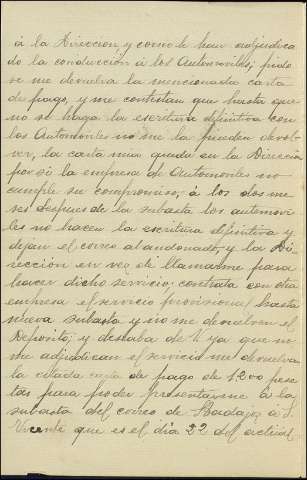 á la Direccion, y como le han adjudica
do la conducción á los Automoviles, pido
se me devuelva la mencionada carta
de pago, y me contestan que hasta que
no se haga la escritura difinitiva con
los Automoviles no me la pueden devol-
ver, la carta mia queda en la Direccion
por si la empresa de Automoviles no
cumple su compromiso, á los dos me
ses despues de la subasta los automovi-
les no hacen la escritura difinitiva y
dejan el correo abandonado, y la Di
rección en vez de llamarme para
hacer dicho servicio, contrata con otra
empresa el servicio provisional hasta
nueva subasta y no me devuelven el
Deposito, y deseaba de V. ya que no
me adjudican el servicio me devuelva
la citada carta de pago de 1200 pese
tas para poder presentarme á la
subasta del correo de Badajoz á S.
Vicente que es el dia 22 del actual